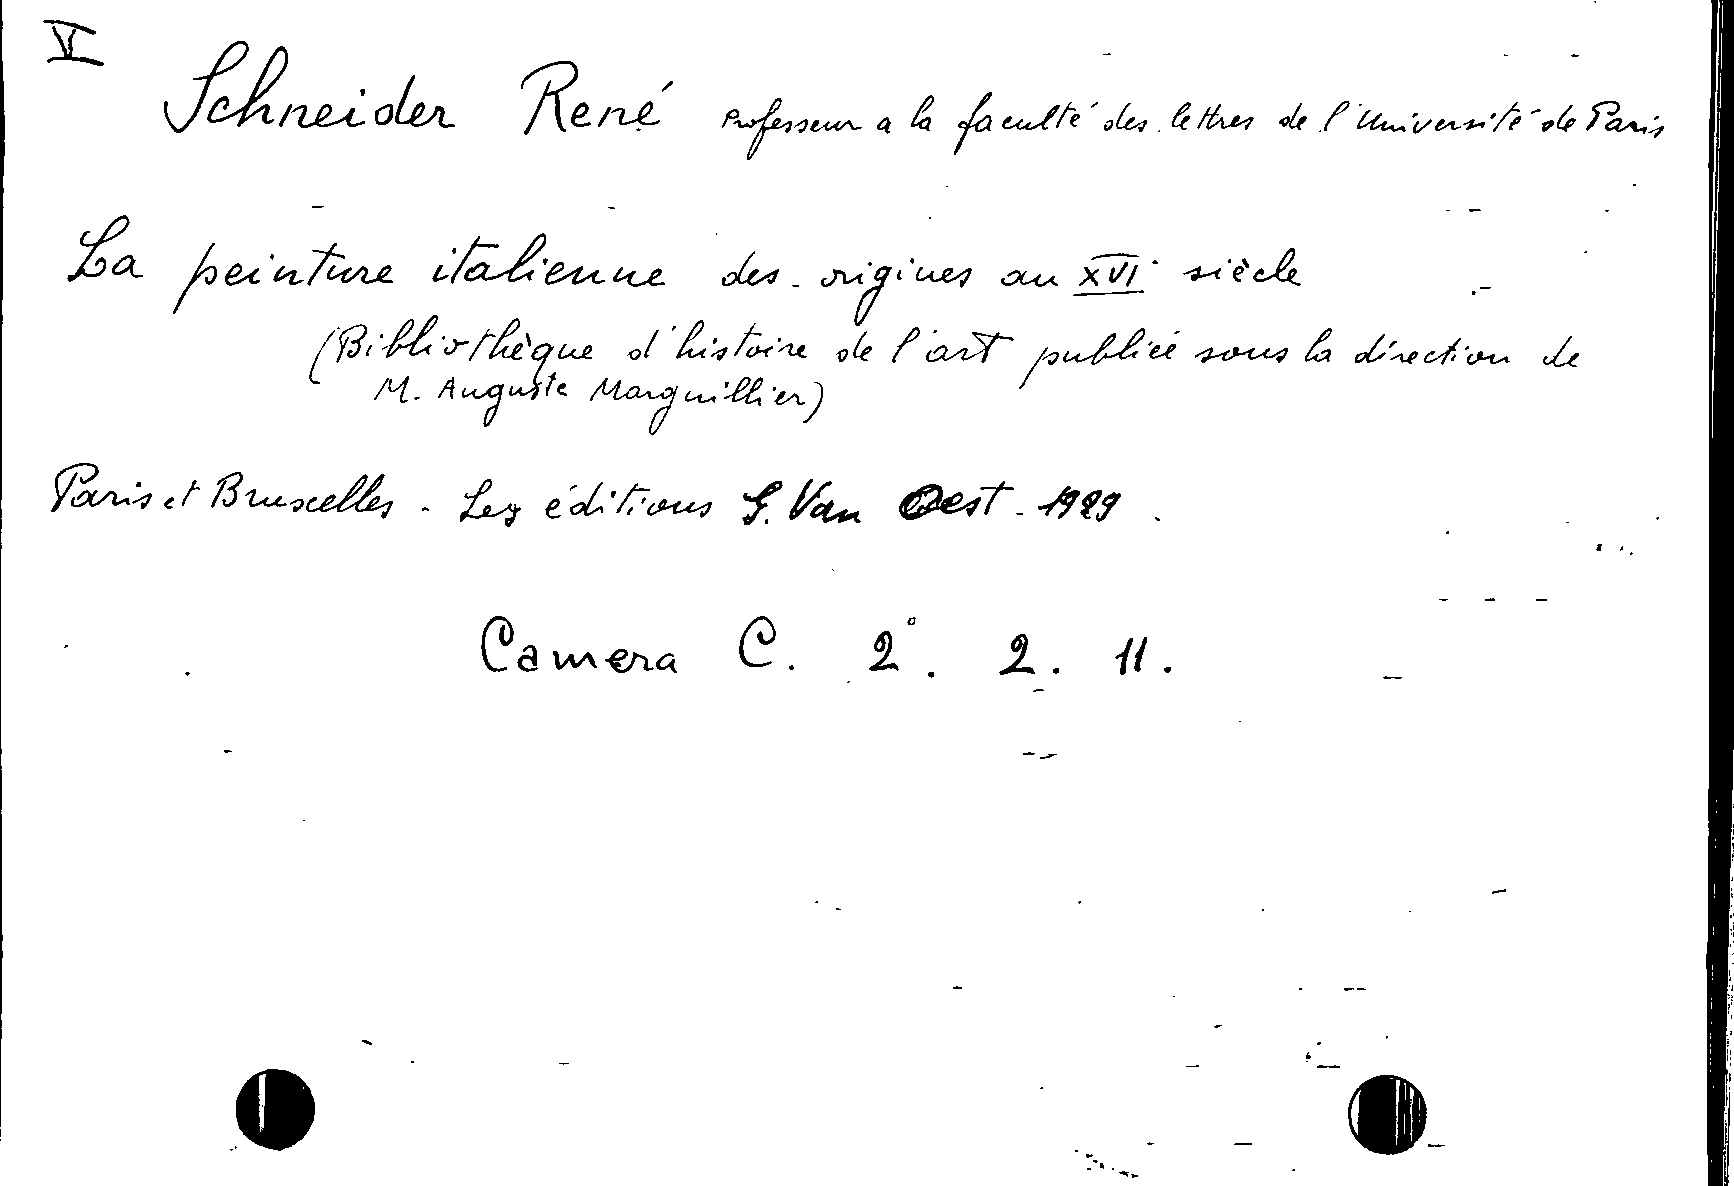 V
Schneider René Professeur a la faculté des lettres de l'Université de Paris
La peinture italienne des origines au XVI siècle
(Bibliothèque d'histoire de l'art publiée sous la direction de
M. Auguste Marguillier)
Paris et Bruxelles - Les éditions G. Van Oest - 1929.
Camera C. 2°. 2. 11.